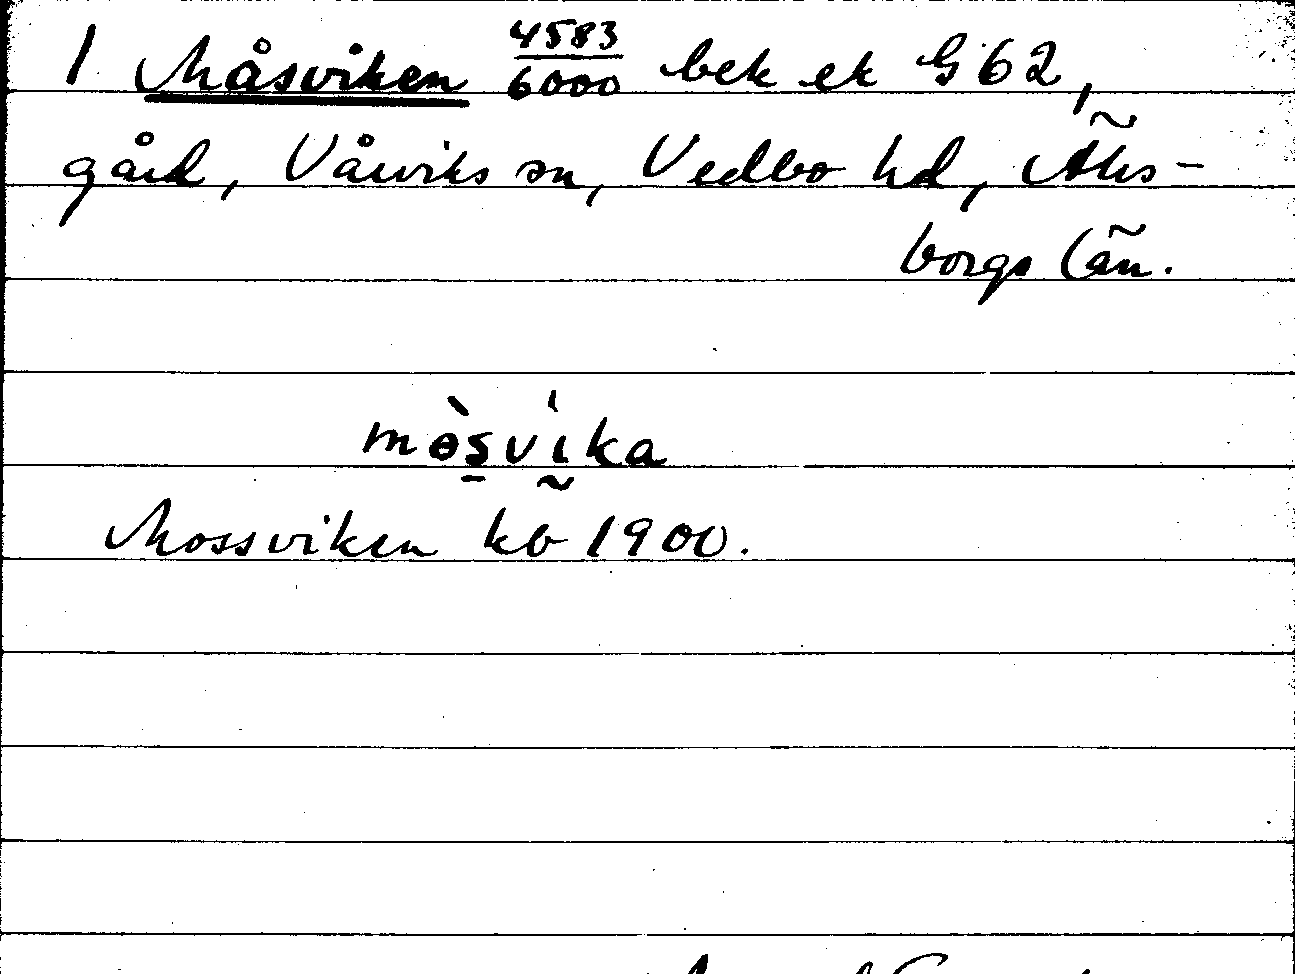 1 Måsviken 4583/6000 bek ek G 62,
gård, Vårviks sn, Vedbo hd, Älvs-
borgs län.
mòsvika
Mossviken kb 1900.